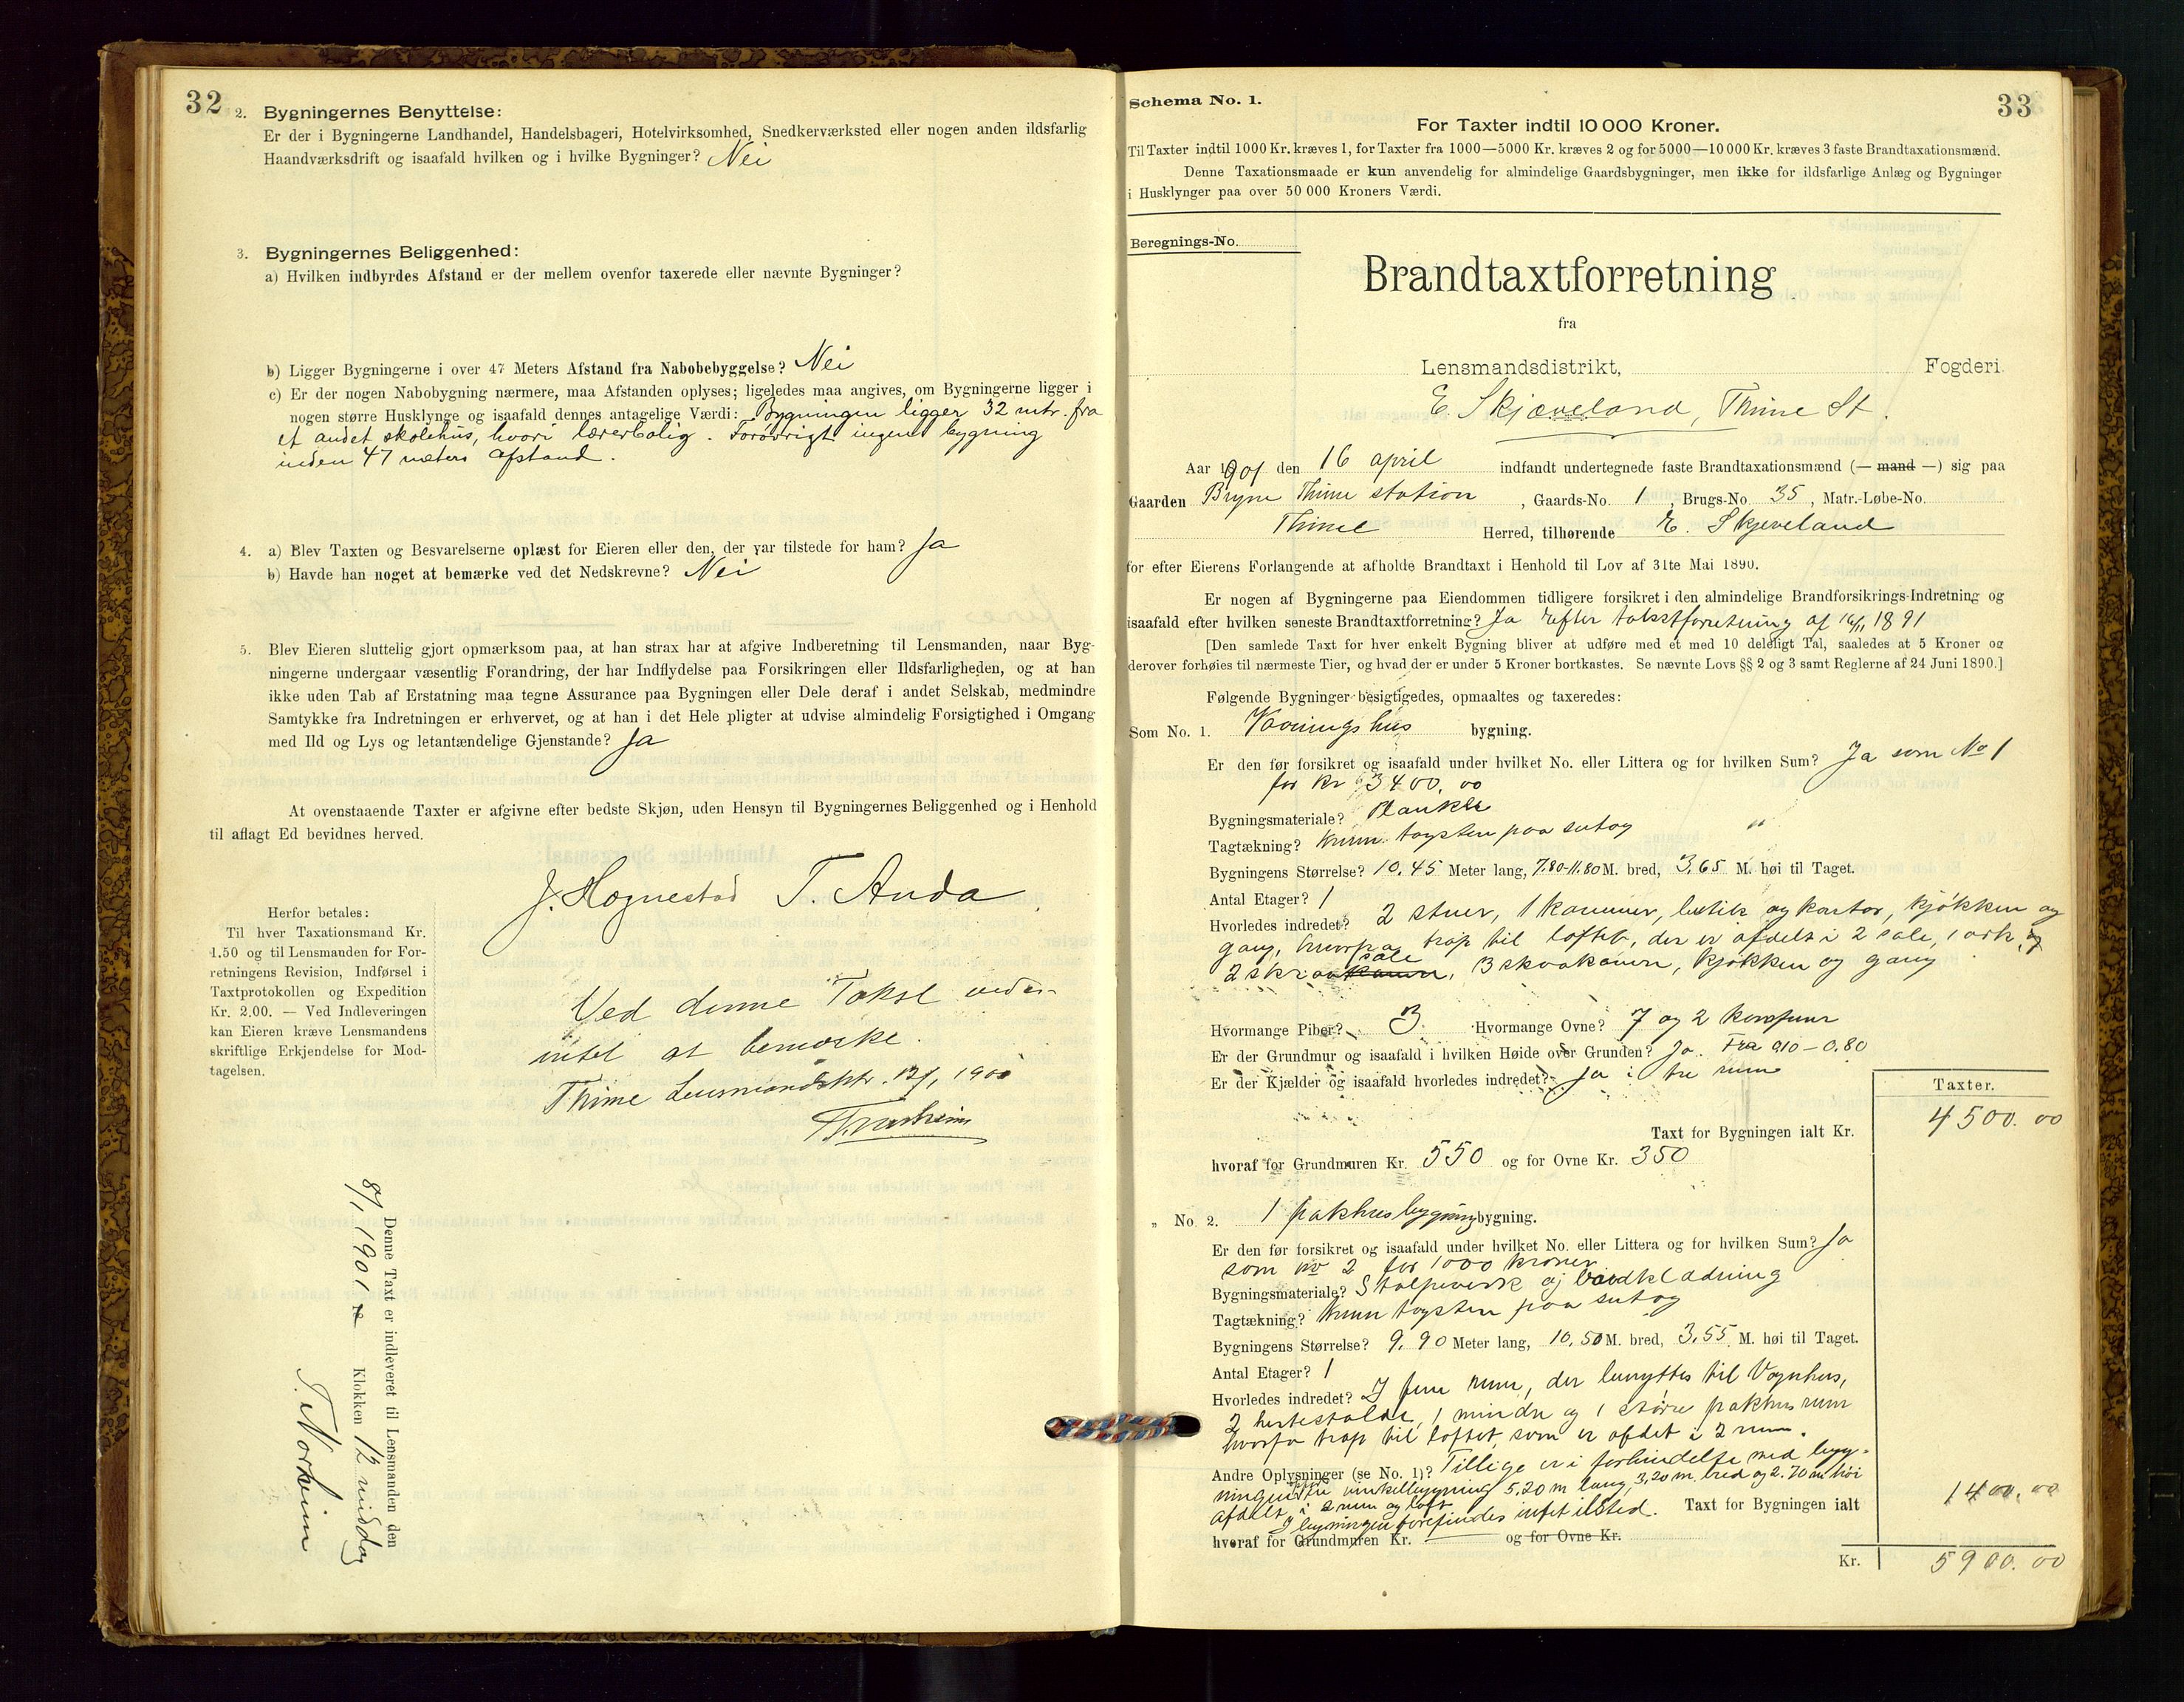 32
2. Bygningernes Benyttelse:
Er der i Bygningerne Landhandel, Handelsbageri, Hotelvirksomhed, Snedkerværksted eller nogen anden ildsfarlig
Haandværksdrift og isaafald hvilken og i hvilke Bygninger? Nei
3. Bygningernes Beliggenhed:
a) Hvilken indbyrdes Afstand er der mellem ovenfor taxerede eller nævnte Bygninger?
b) Ligger Bygningerne i over 47 Meters Afstand fra Nabobebyggelse? Nei
c) Er der nogen Nabobygning nærmere, maa Afstanden oplyses; ligeledes maa angives, om Bygningerne ligger i
nogen større Husklynge og isaafald dennes antagelige Værdi: Bygningen ligger 32 mtr. fra
et andet skolehus, hvori lærerbolig. Forøvrigt ingen bygning
inden 47 meters Afstand.
4. a) Blev Taxten og Besvarelserne oplæst for Eieren eller den, der var tilstede for ham? Ja
b) Havde han noget at bemærke ved det Nedskrevne? Nei
5. Blev Eieren sluttelig gjort opmærksom paa, at han strax har at afgive Indberetning til Lensmanden, naar Byg-
ningerne undergaar væsentlig Forandring, der har Indflydelse paa Forsikringen eller Ildsfarligheden, og at han
ikke uden Tab af Erstatning maa tegne Assurance paa Bygningen eller Dele deraf i andet Selskab, medmindre
Samtykke fra Indretningen er erhvervet, og at han i det Hele pligter at udvise almindelig Forsigtighed i Omgang
med Ild og Lys og letantændelige Gjenstande? Ja
At ovenstaaende Taxter er afgivne efter bedste Skjøn, uden Hensyn til Bygningernes Beliggenhed og i Henhold
til aflagt Ed bevidnes herved.
J. Hognestad T. Anda
Herfor betales:
Til hver Taxationsmand Kr.
1.50 og til Lensmanden for For-
retningens Revision, Indførsel i
Taxtprotokollen og Expedition
Kr. 2.00. — Ved Indleveringen
kan Eieren kræve Lensmandens
skriftlige Erkjendelse for Mod-
tagelsen.
Ved denne Takst
intet at bemærke.
Thime Lensmandsktr.
Denne Taxt er indleveret til Lensmanden den
8/1 1901 Klokken 12 middag
T. Norheim
Schema No. 1.
33
For Taxter indtil 10 000 Kroner.
Til Taxter indtil 1000 Kr. kræves 1, for Taxter fra 1000—5000 Kr. kræves 2 og for 5000—10000 Kr. kræves 3 faste Brandtaxationsmænd.
Denne Taxationsmaade er kun anvendelig for almindelige Gaardsbygninger, men ikke for ildsfarlige Anlæg og Bygninger
i Husklynger paa over 50 000 Kroners Værdi.
Beregnings-No.
Brandtaxtforretning
fra
Lensmandsdistrikt, Fogderi
E. Skjæveland, Thime St.
Aar 1901 den 16 april indfandt undertegnede faste Brandtaxationsmænd (— mand —) sig paa
Gaarden Bryne Thime station, Gaards-No. 1, Brugs-No 35, Matr.-Løbe-No.
Thime Herred, tilhørende E. Skjeveland
for efter Eierens Forlangende at afholde Brandtaxt i Henhold til Lov af 31te Mai 1890.
Er nogen af Bygningerne paa Eiendommen tidligere forsikret i den almindelige Brandforsikrings-Indretning og
isaafald efter hvilken seneste Brandtaxtforretning? Ja Efter takstforretning af 16/11 1891
[Den samlede Taxt for hver enkelt Bygning bliver at udføre med et med 10 deleligt Tal, saaledes at 5 Kroner og
derover forhøies til nærmeste Tier, og hvad der er under 5 Kroner bortkastes. Se nævnte Lovs §§ 2 og 3 samt Reglerne af 24 Juni 1890.]
Følgende Bygninger besigtigedes, opmaaltes og taxeredes:
Som No. 1. Vaaningshus bygning.
Er den før forsikret og isaafald under hvilket No. eller Littera og for hvilken Sum? Ja som No 1
for Kr 3400.00
Bygningsmateriale? Planker
Tagtækning? Krum tagsten paa sutag
Bygningens Størrelse? 10,45 Meter lang, 7.80-11.80 M. bred, 3,65 M. høi til Taget.
Antal Etager? 1
Hvorledes indredet? 2 stuer, 1 kammer, butik og kontor, kjøkken og
gang, hvorpaa trap til loftet, der er afdelt i 2 sale, 1 ark, og
2 skraasale, 3 skraakamre, kjøkken og gang
Hvormange Piber? 3 Hvormange Ovne? 7 og 2 komfurer
Er der Grundmur og isaafald i hvilken Høide over Grunden? Ja. Fra 0.10 — 0.80
Er der Kjælder og isaafald hvorledes indredet? Ja i tre rum
Taxter.
Taxt for Bygningen ialt Kr. 4500.00
hvoraf for Grundmuren Kr. 550 og for Ovne Kr. 350
„ No. 2. 1 pakhusbygning bygning.
Er den før forsikret og isaafald under hvilket No. eller Littera og for hvilken Sum? Ja
som No 2 for 1000 kroner
Bygningsmateriale? Stolpeverk og bordklædning
Tagtækning? Krum tagsten paa sutag
Bygningens Størrelse? 9,90 Meter lang, 10,50 M. bred, 3,55 M. høi til Taget.
Antal Etager? 1
Hvorledes indredet? I fem rum, der benyttes til Vognhus,
2 hestestalde, 1 mindre og 1 større pakhusrum
hvorfra trap til loftet, som er afdelt i 2 rum.
Andre Oplysninger (se No. 1)? Tillige er i forbindelse med byg-
ningen vinkelbygning 5,20 m lang, 3,20 m bred og 2.70 m høi
afdelt i 2 rum og loft
I bygningen forefindes intet ilsted. Taxt for Bygningen ialt 1400.00
hvoraf for Grundmuren Kr. og for Ovne Kr.
Kr. 5900.00